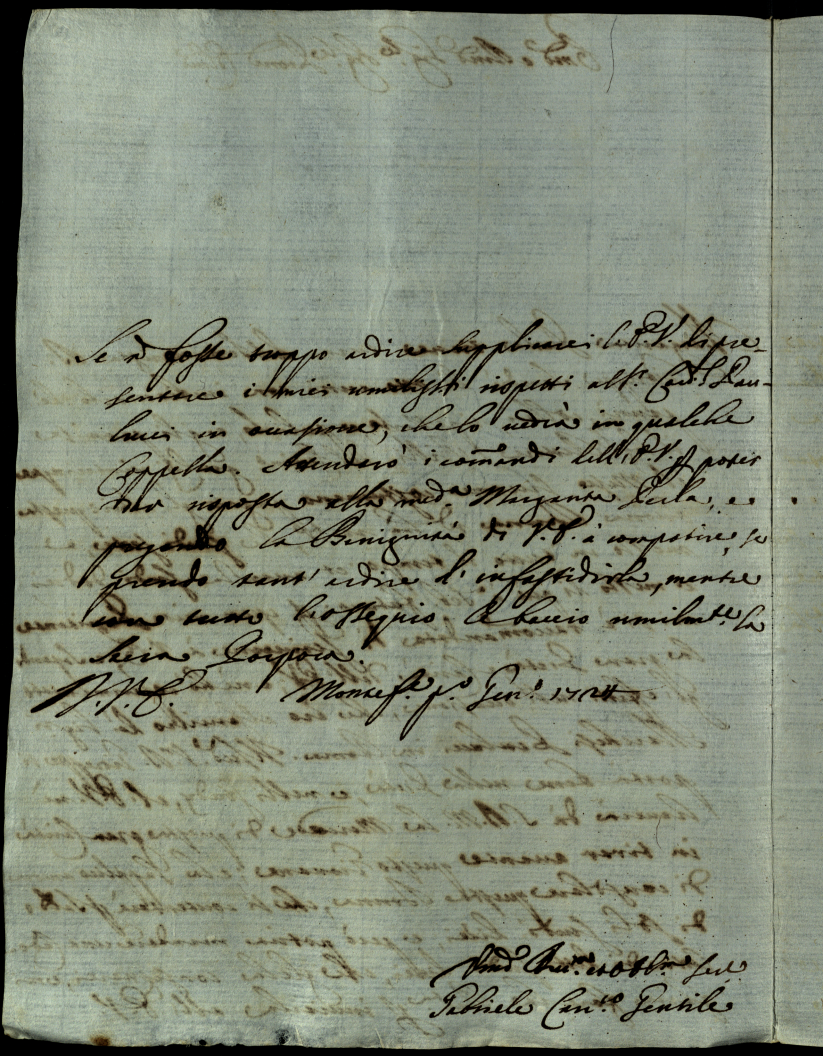 Se ñ fosse troppo ardire supplicarei l'E.V. di pre-
sentare i miei umilissmi rispetti all'E. Card.l Pau-
lucci in occasione, che lo vedrà in qualche
Cappella. Attenderò i comãndi dell'E.V. p poter
dar risposta alla med.a Margarita Perla, e
pregando la Benignità di V.E. à compatire, se
prendo tant'ardire d'infastidirla, mentre
con tutto l'ossequio le baccio umilm.te la
Sacra Porpora.
D.V.E. Montef.e p.o Gen.o 1724
Umõ Dev.mo et Obl.mo Ser.e
Gabriele Can.co Gentile